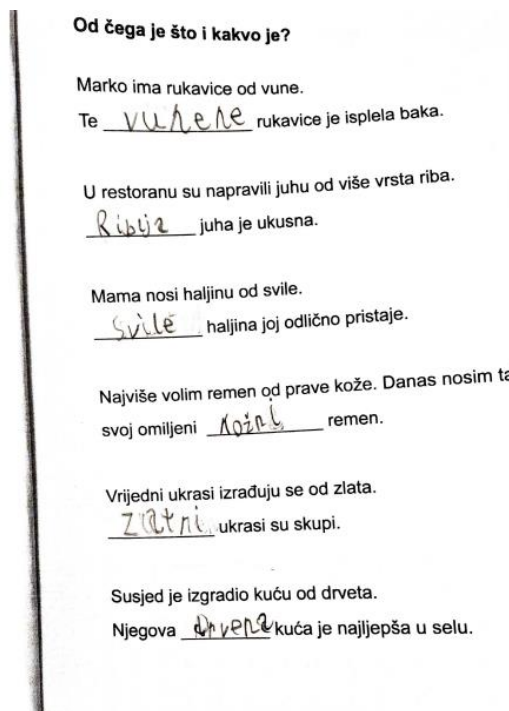 Od čega je što i kakvo je?
Marko ima rukavice od vune.
Te vunene rukavice je isplela baka.
U restoranu su napravili juhu od više vrsta riba.
Riblja juha je ukusna.
Mama nosi haljinu od svile.
Svile haljina joj odlično pristaje.
Najviše volim remen od prave kože. Danas nosim ta
svoj omiljeni kožni remen.
Vrijedni ukrasi izrađuju se od zlata.
Zlatni ukrasi su skupi.
Susjed je izgradio kuću od drveta.
Njegova drvena kuća je najljepša u selu.